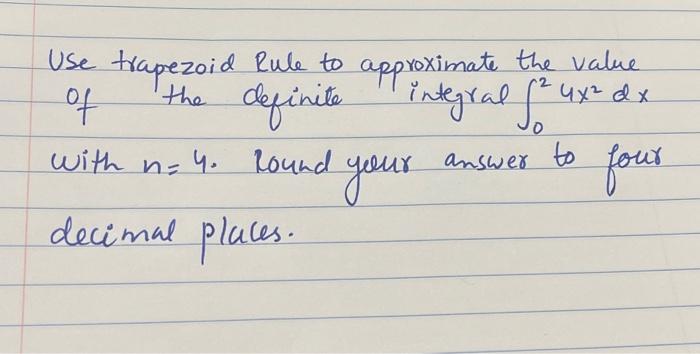 Use trapezoid Rule to approximate the value
of the definite integral ∫₀² 4x² dx
with n=4. Round your answer to four
decimal places.